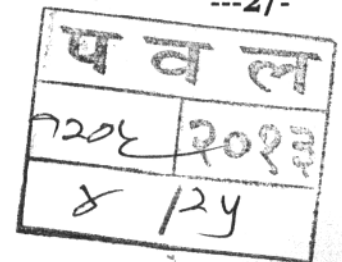 ---2/-
प व ल
१२०५ २०१३
४ / २५